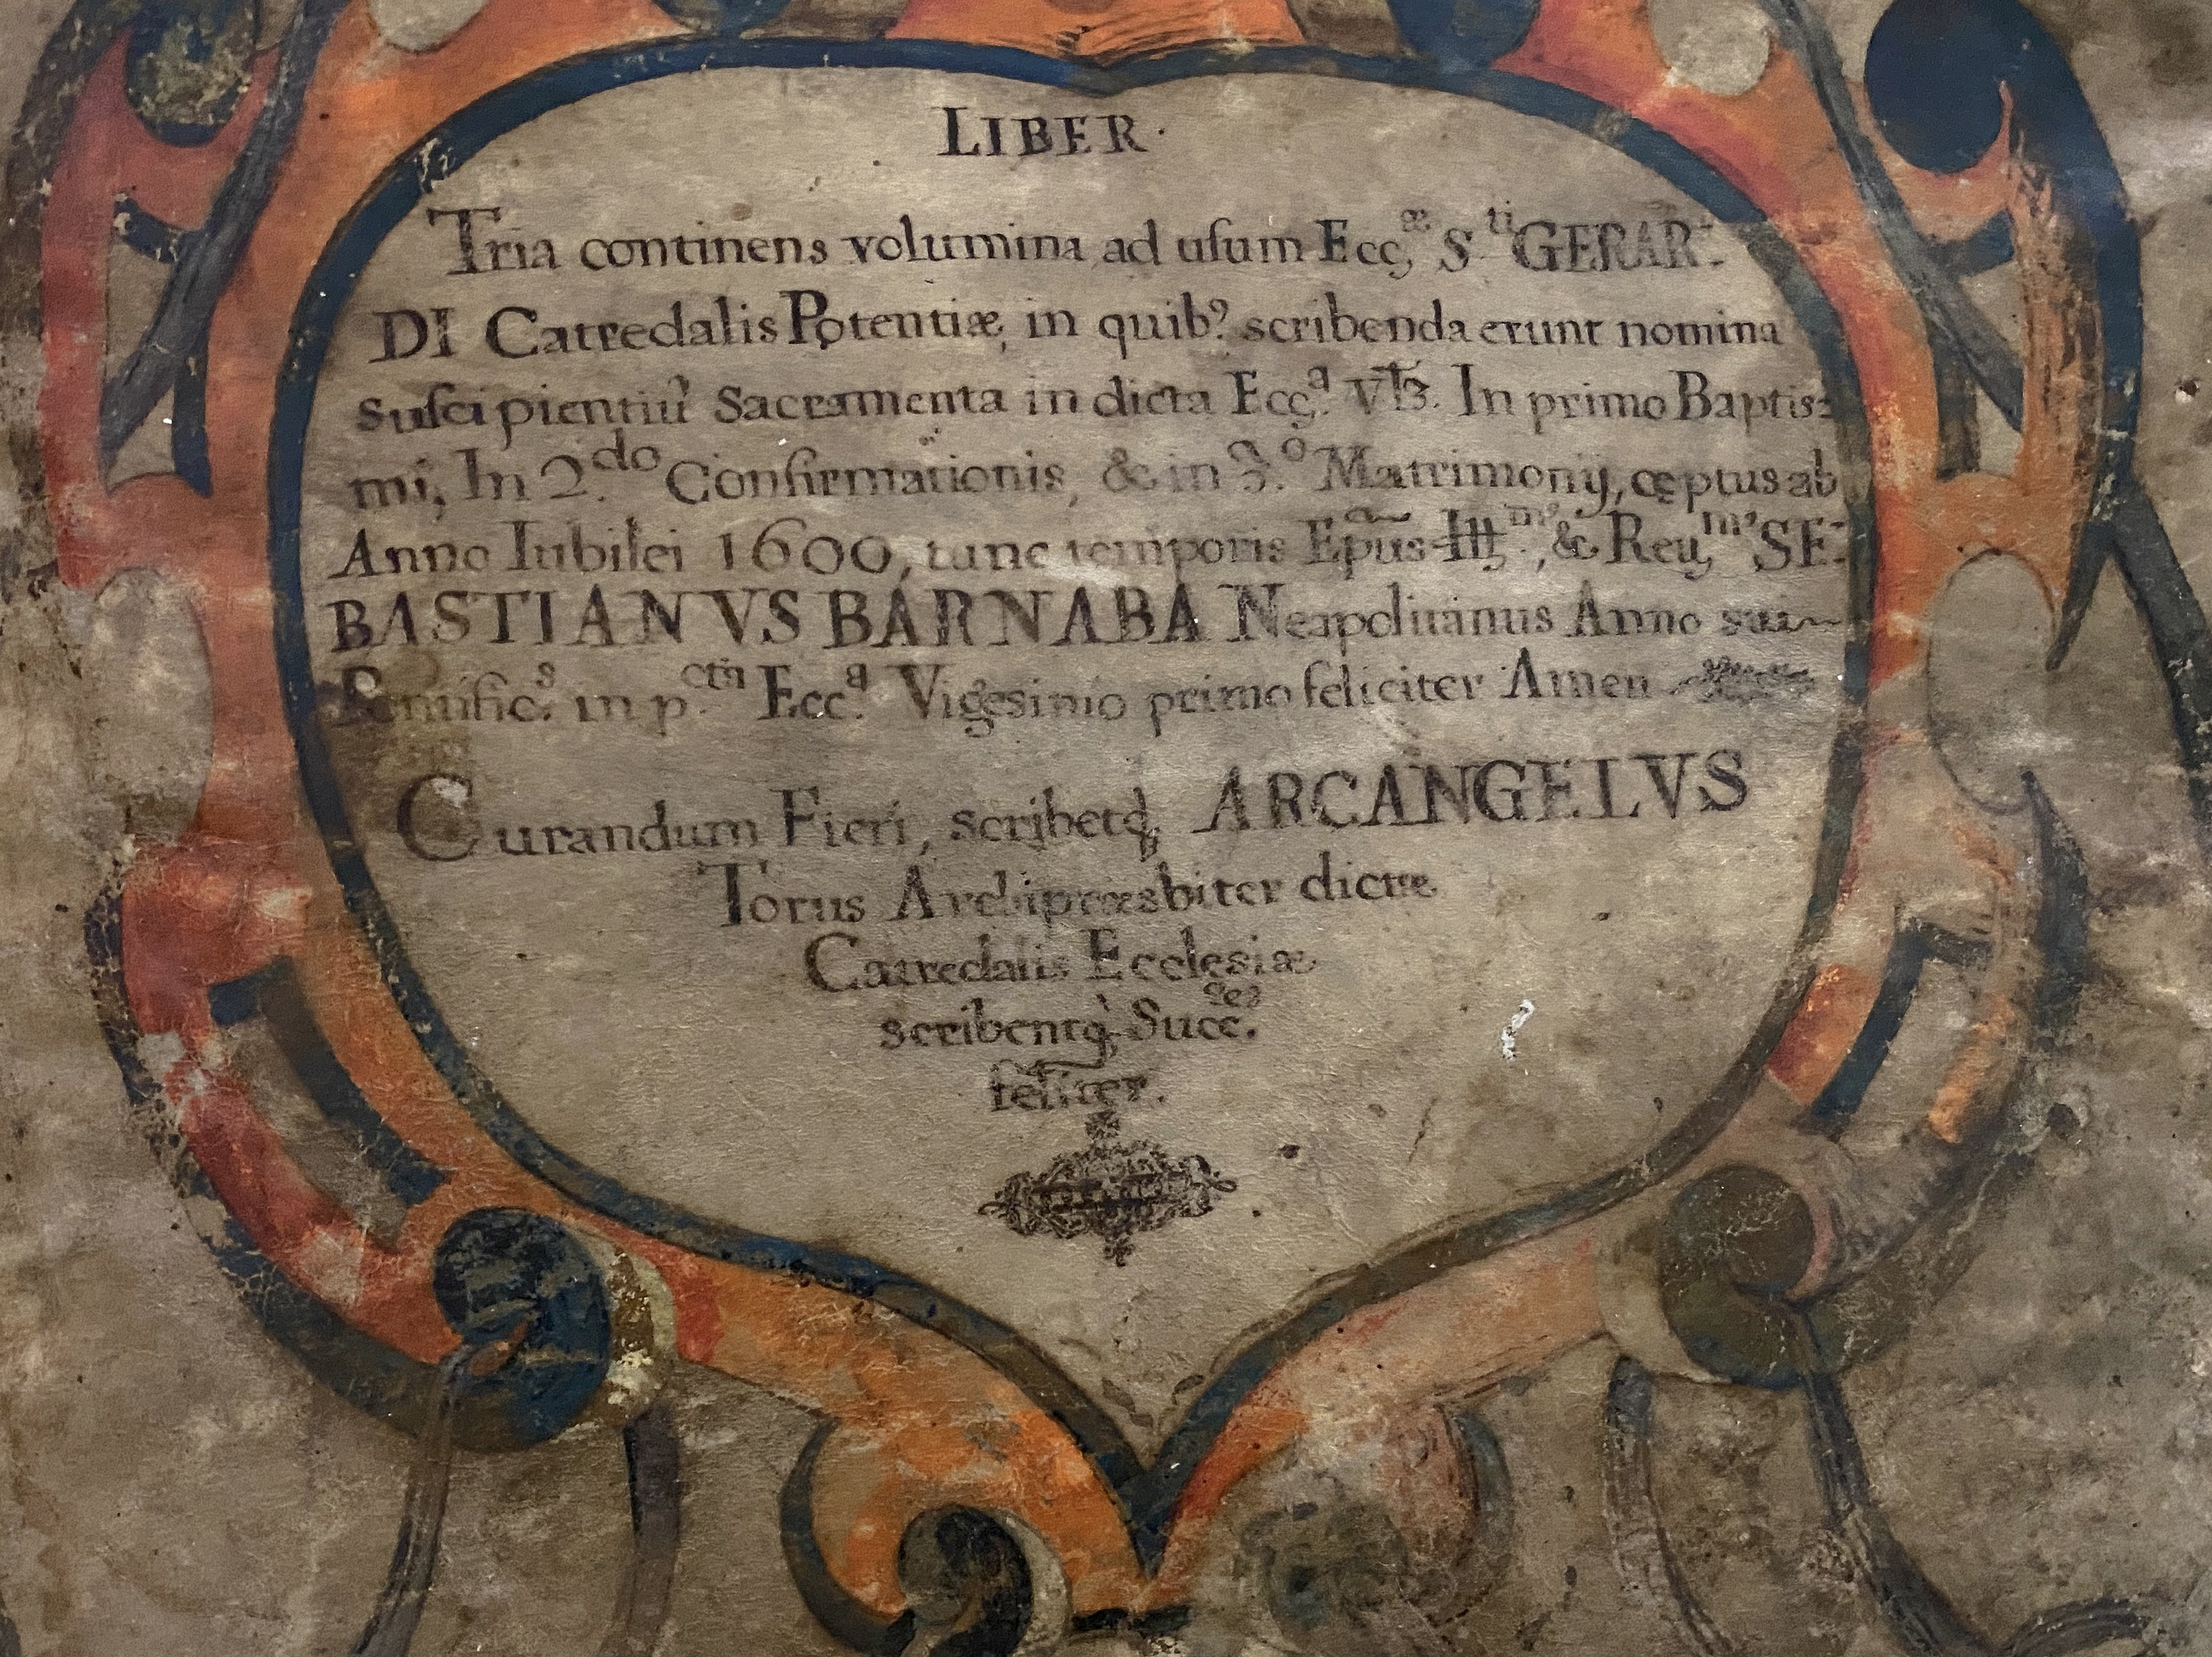 LIBER·
Tria continens volumina ad usum Ecc.æ S.ti GERAR:
DI Catredalis Potentiæ, in quib? scribenda erunt nomina
suscipientiũ Sacramenta in dicta Ecc.a Vt3. In primo Baptis:
mi, In 2.do Confirmationis, & in 3.o Matrimonij, cęptus ab
Anno Iubilei 1600, tunc temporis Epũs Ill.m', & Reu.m' SE:
BASTIANVS BARNABA Neapolitanus Anno sui~
Pontific.s in p.cta Ecc.a Vigesimo primo feliciter Amen
Curandum Fieri, scribetq; ARCANGELVS
Torus Archipræsbiter dictæ
Catredalis Ecclesiæ
scribentq; Succ.es
feliter.